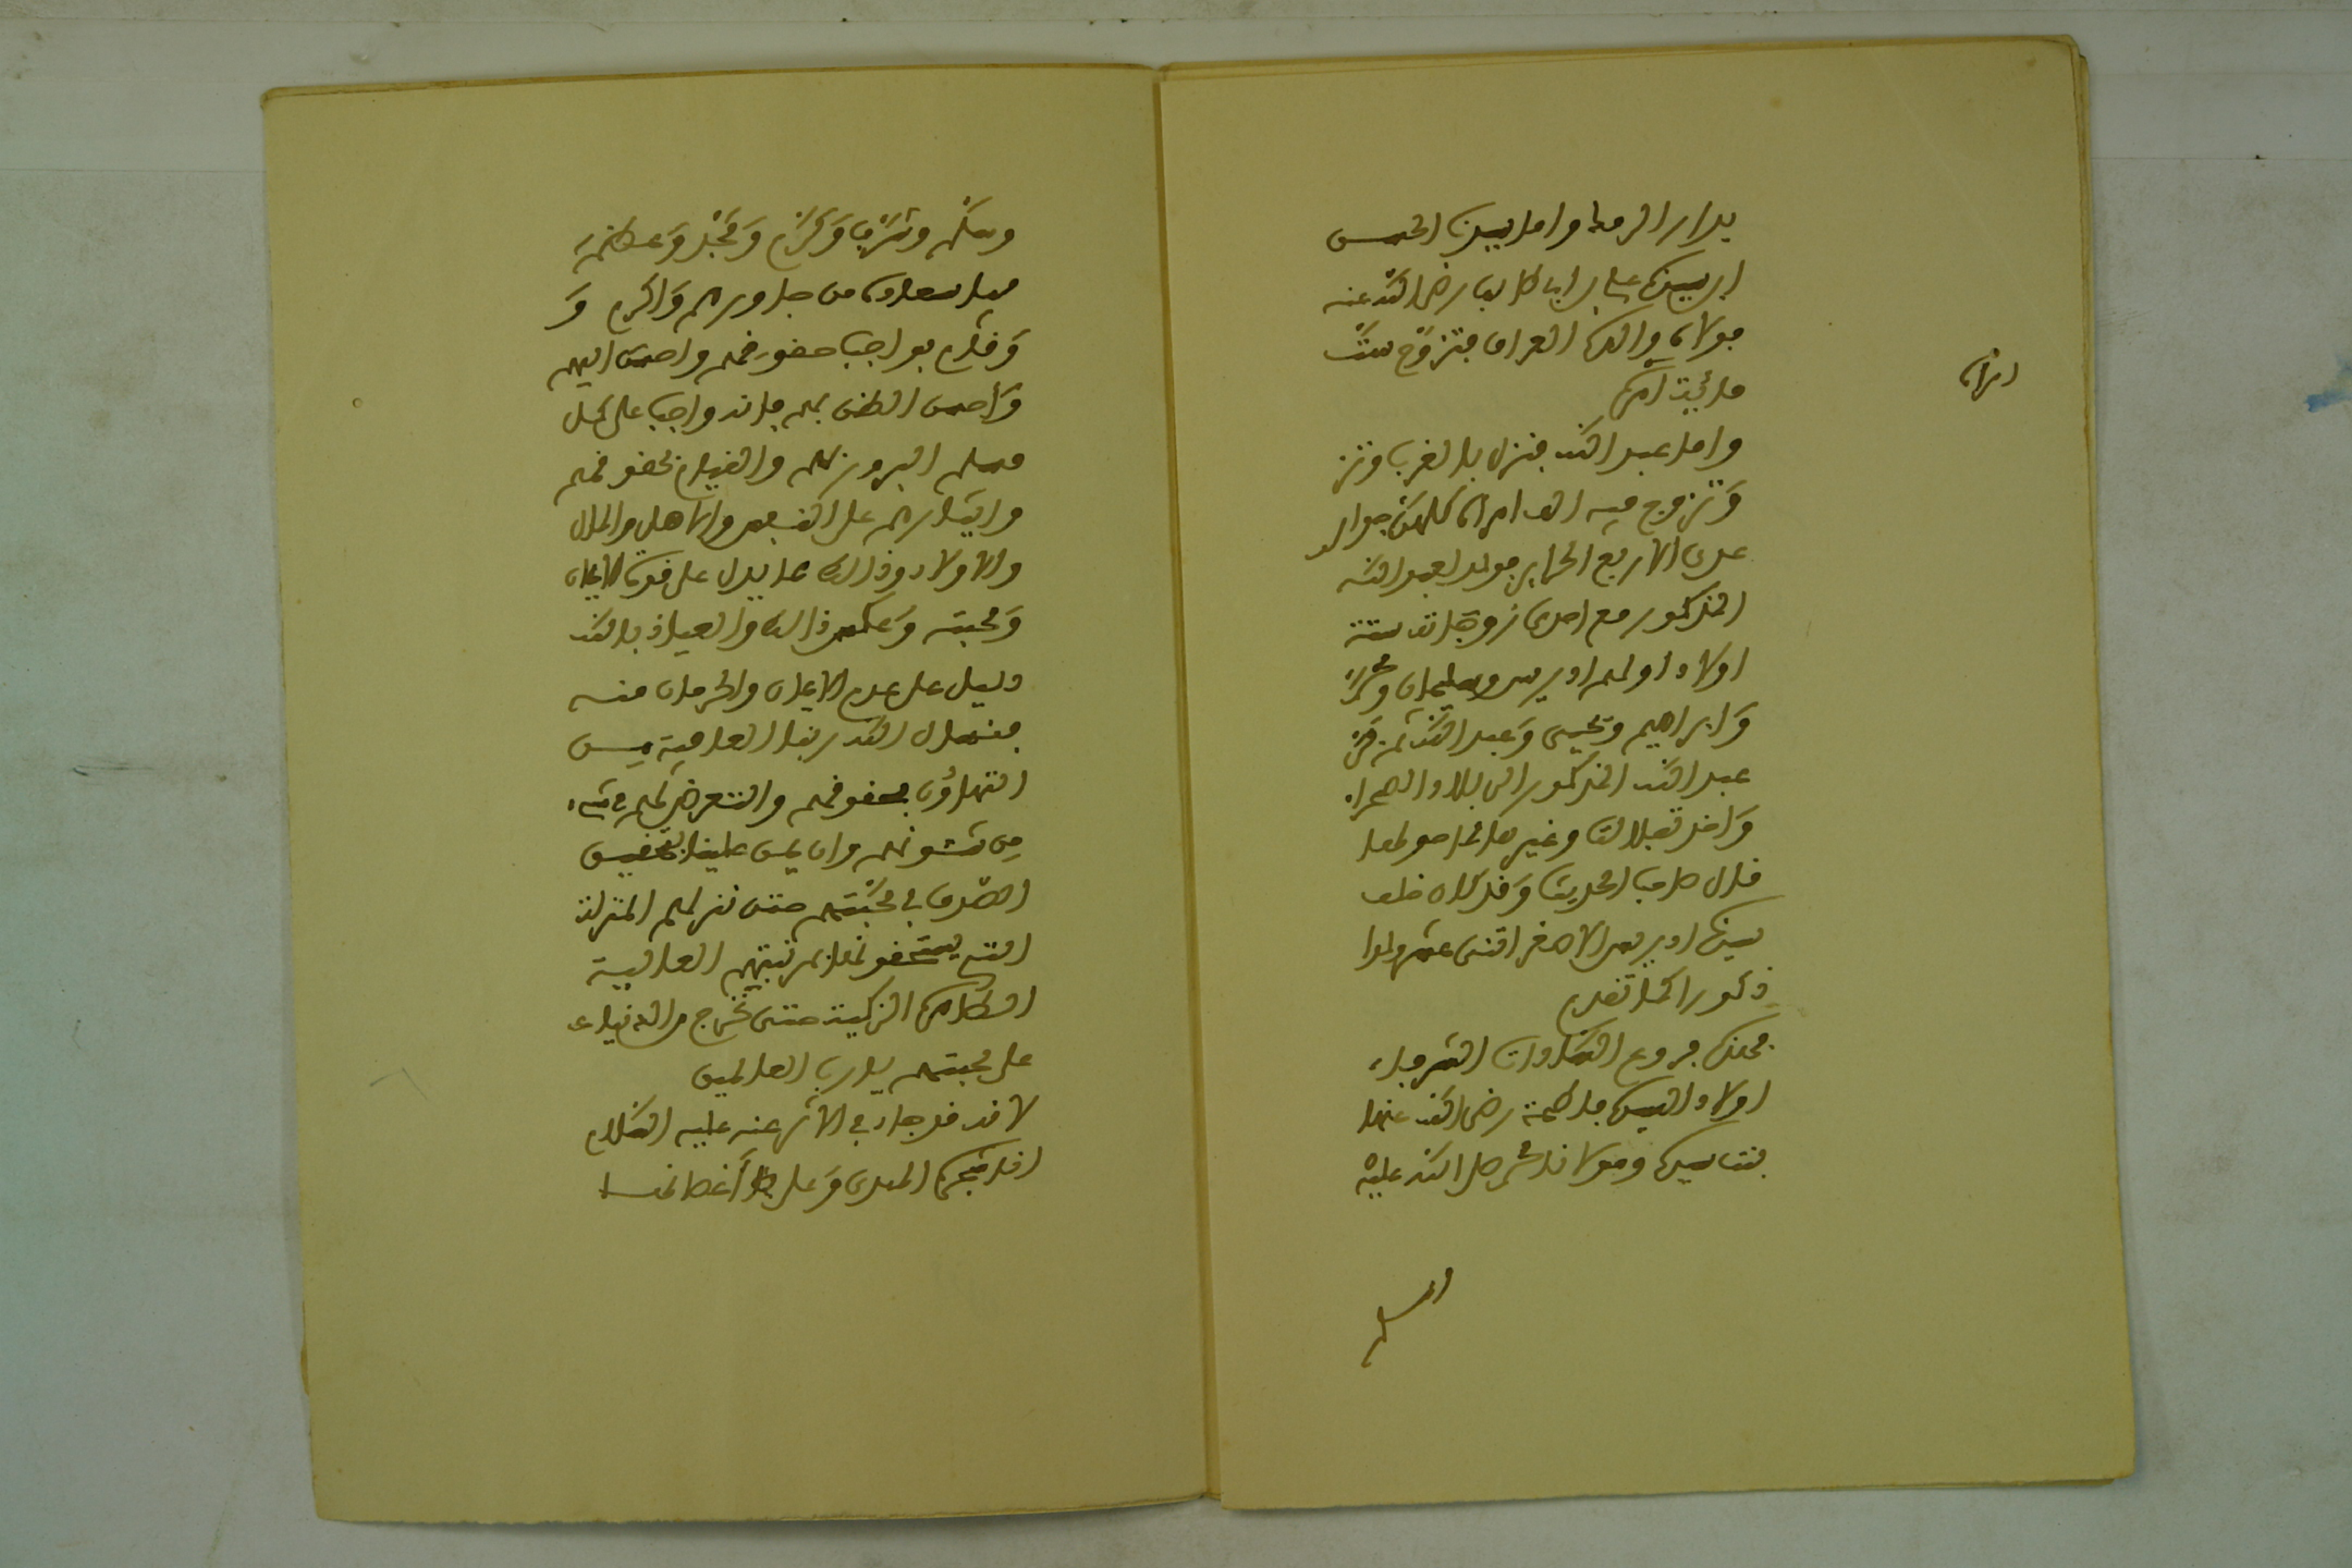 بدار الرضا واما سيدنا الحسن
ابن سيدنا علي بن ابي طالب رضي الله عنه
مولاي والي العراق فتزوج ستت
مائة امرأة
امرأة
واما عبد الله فنزل بالغرب وتز
وتزوج فيه الف امرأة كلهن جوار
عدى الاربع الحراير فولد لعبد الله
المذكور مع احدى زوجاته ستة
اولاد اولهم ادريس وسليمان ومحمدا
وابراهيم ويحيى وعبد الله ثم فر
عبد الله المذكور الى بلاد الصحراء
واخذ تفلالت وغيرها مما حولها
قال صاحب الحديث وقد كان خلف
سيدنا ادريس الاصغر اثنى عشر ولدا
ذكورا كما تقدم
فهذه فروع السادات الشرفاء
اولاد السيدة فاطمة رضي الله عنها
بنت سيدنا ومولانا محمد صلى الله عليه
وسلم
وسلم وشرف وكرم ومجد وعظم
فيا سعادة من جاورهم واكرم و
وقام بواجب حقوقهم واحسن اليهم
وأحسن الظن بهم فانه واجب على كل
مسلم البرور بهم والقيام بحقوقهم
وايثارهم على النفس والاهل والمال
والاولاد وذالك مما يدل على قوة الايمان
ومحبته وعكس ذالك والعياذ بالله
دليل على عدم الايمان والحرمان منه
فنسأل الله ربنا العافية من
التهاون بحقوقهم والتعرض لهم في شيء
من شئونهم وان يمن علينا بتحقيق
الصدق في محبتهم حتى ننزلهم المنزلة
التي يستحقونها بمرتبتهم العالية
الطاهرة الزكية حتى نخرج من الدنيا
على محبتهم يا رب العالمين
لانه قد جاء في الاثر عنه عليه السلام